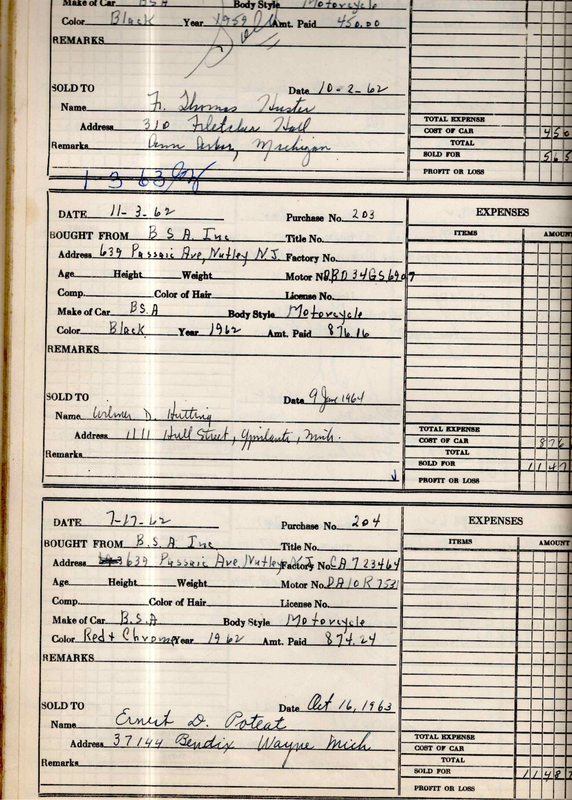 Make of Car BSA Body Style Motorcycle
Color Black Year 1959 Amt. Paid 450.00
REMARKS Sold
SOLD TO Date 10-2-62
Name Fr. Thomas Huster
Address 310 Fletcher Hall
Remarks Ann Arbor, Michigan
TOTAL EXPENSE
COST OF CAR 450
TOTAL
SOLD FOR 565
PROFIT OR LOSS
1 3 63
DATE 11-3-62 Purchase No. 203
BOUGHT FROM B.S.A. Inc Title No.
Address 639 Passaic Ave, Nutley N.J. Factory No.
Age Height Weight Motor No. DBD34GS6907
Comp. Color of Hair License No.
Make of Car BSA Body Style Motorcycle
Color Black Year 1962 Amt. Paid 876.16
REMARKS
SOLD TO Date 9 June 1964
Name Wilmer D. Hutting
Address 1111 Hull Street, Ypsilanti, Mich.
Remarks
EXPENSES
ITEMS AMOUNT
TOTAL EXPENSE
COST OF CAR 876
TOTAL
SOLD FOR 1147
PROFIT OR LOSS
DATE 7-17-62 Purchase No. 204
BOUGHT FROM B.S.A Inc Title No.
Address 639 Passaic Ave. Nutley N.J. Factory No. CA723464
Age Height Weight Motor No. DA10R7531
Comp. Color of Hair License No.
Make of Car B.S.A Body Style Motorcycle
Color Red + Chrome Year 1962 Amt. Paid 874.24
REMARKS
SOLD TO Date Oct 16, 1963
Name Ernest D. Poteat
Address 37144 Bendix Wayne Mich
Remarks
EXPENSES
ITEMS AMOUNT
TOTAL EXPENSE
COST OF CAR
TOTAL
SOLD FOR 1148
PROFIT OR LOSS